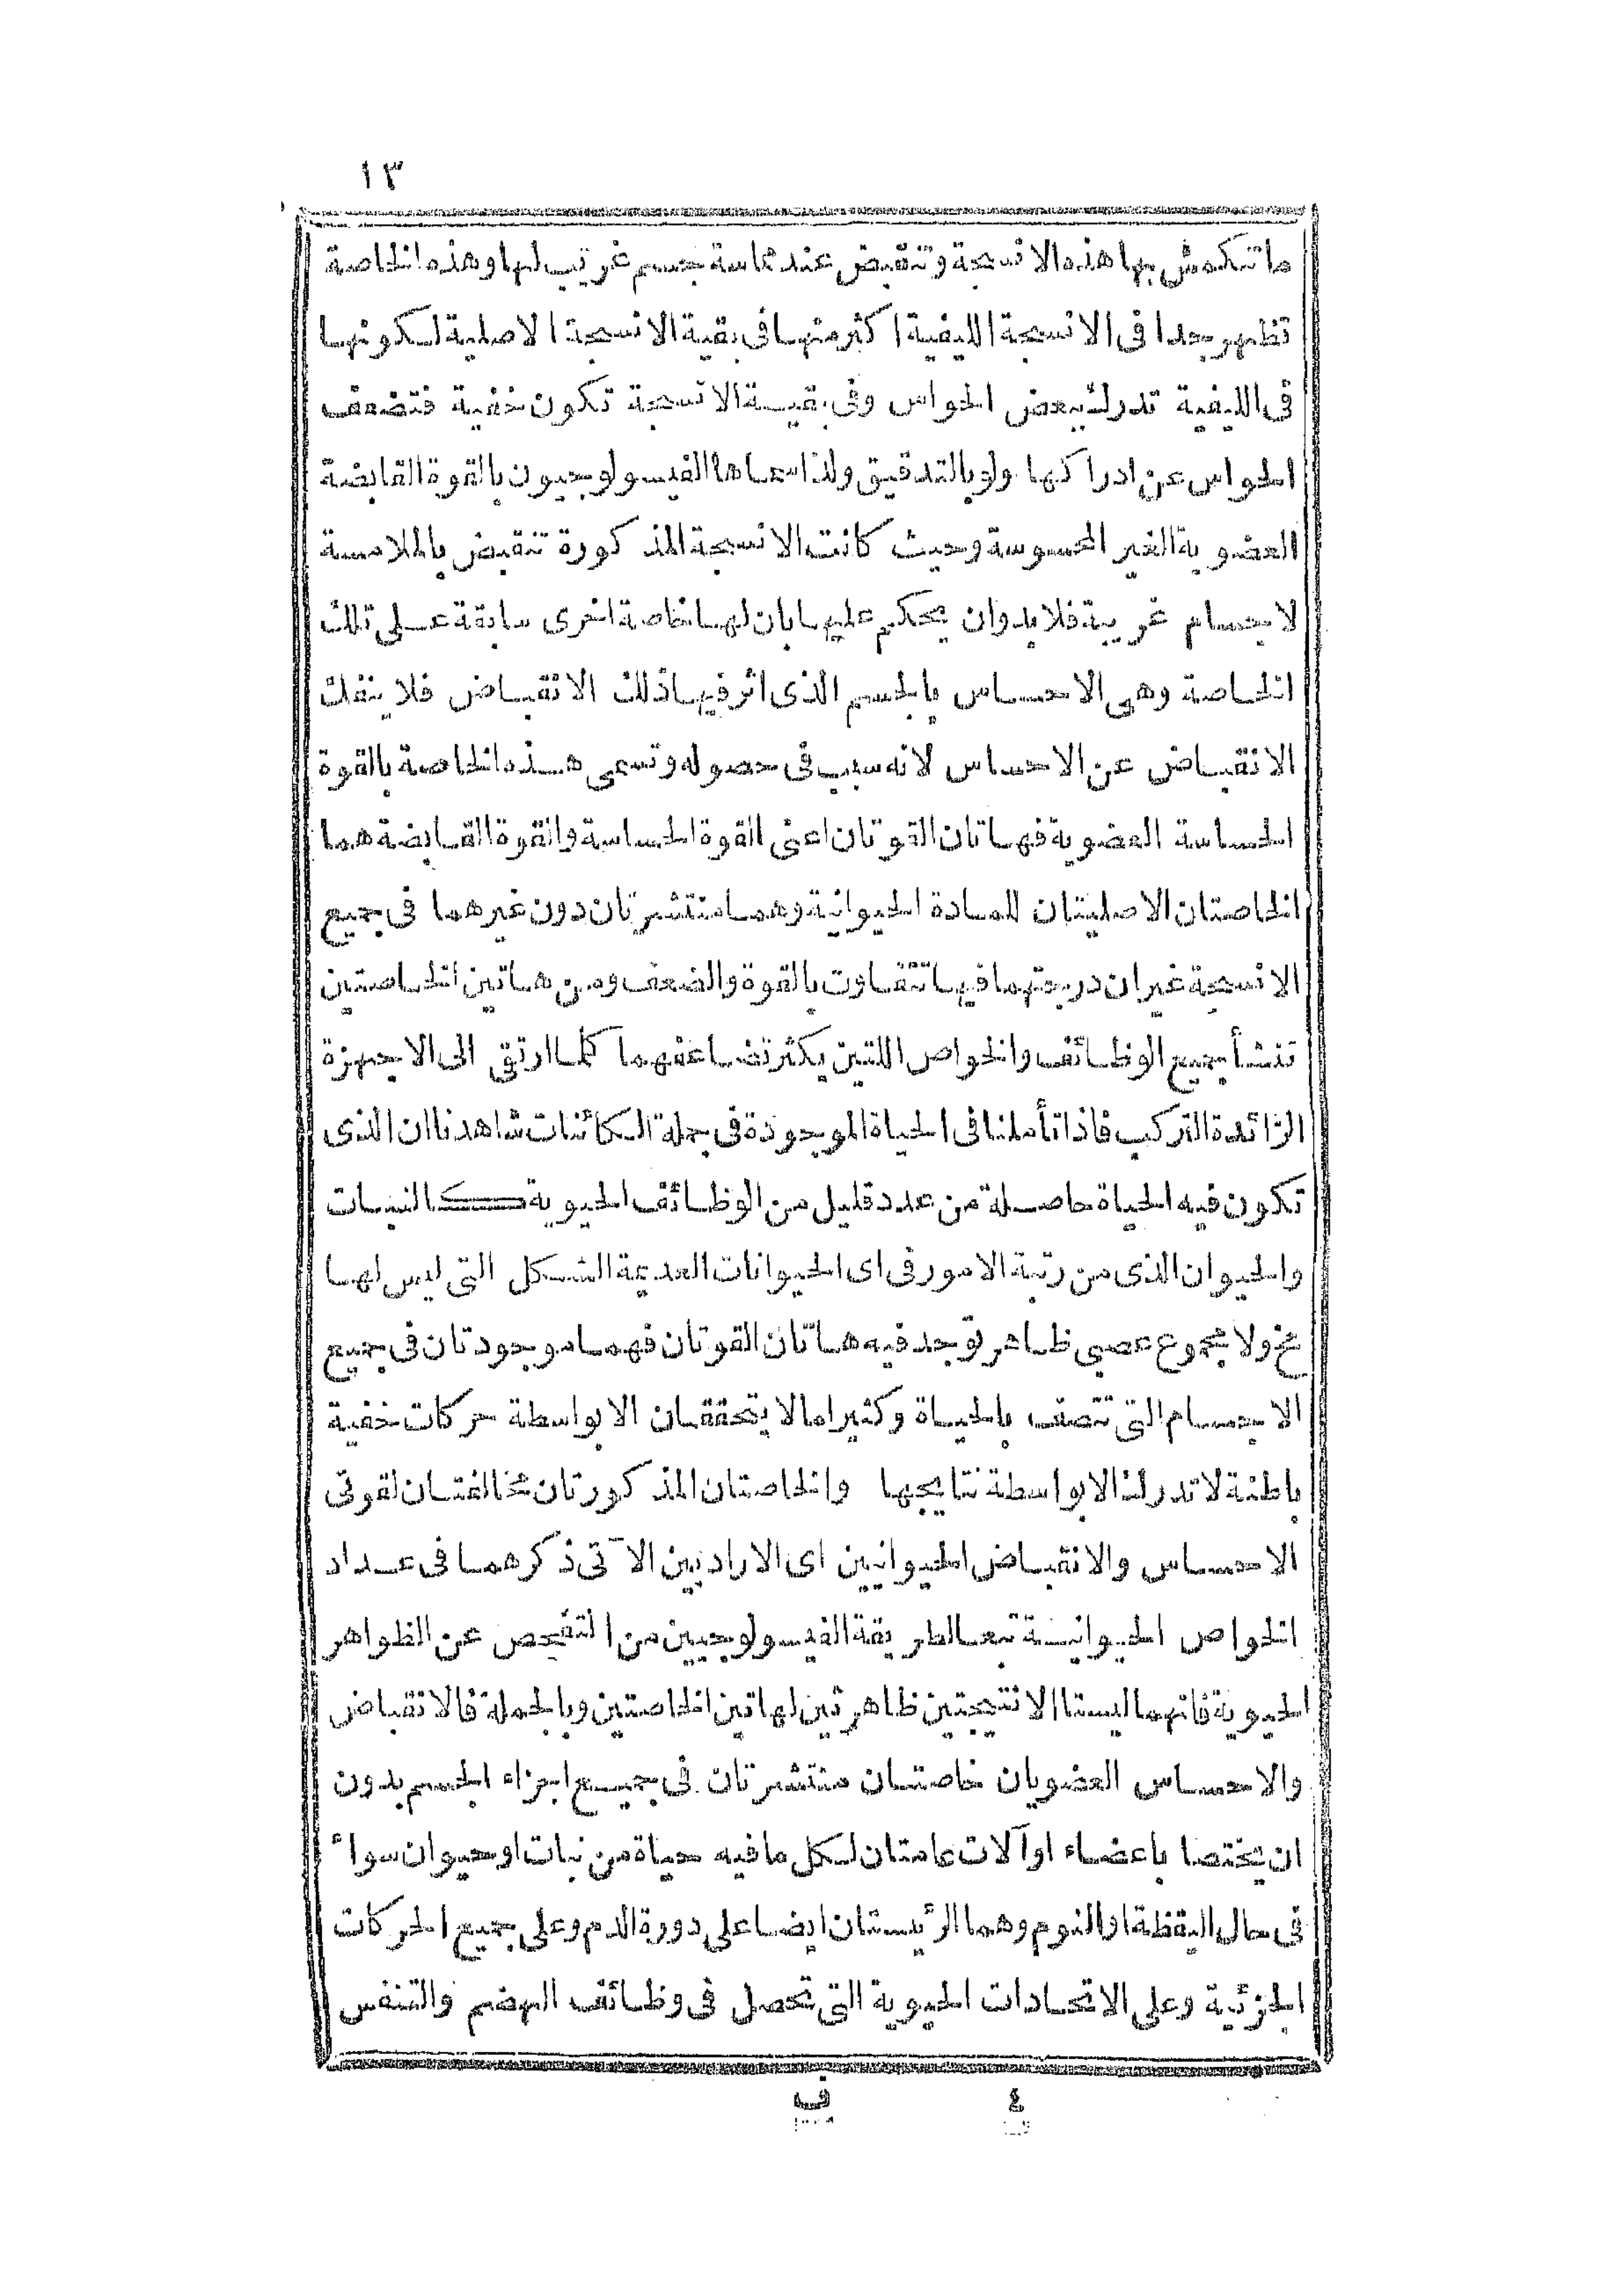 ١٣
ما تنكمش بها هذه الانسجة وتنقبض عند مماسة جسم غريب لها وهذه الخاصة
تظهر جدا فى الانسجة الليفية اكثر منها فى بقية الانسجة الاصلية لكونها
فى الليفية تدرك ببعض الحواس وفى بقية الانسجة تكون خفية فتضعف
الحواس عن ادراكها ولو بالتدقيق ولذا سماها الفيسولوجيون بالقوة القابضة
العضوية الغير المحسوسة وحيث كانت الانسجة المذكورة تنقبض بالملامسة
لاجسام غريبة فلا بد وان يحكم عليها بان لها خاصة اخرى سابقة على تلك
الخاصة وهى الاحساس بالجسم الذى اثر فيها ذلك الانقباض فلا ينفك
الانقباض عن الاحساس لانه سبب فى حصوله وتسمى هذه الخاصة بالقوة
الحساسة العضوية فهاتان القوتان اعنى القوة الحساسة والقوة القابضة هما
الخاصتان الاصليتان للمادة الحيوانية وهما منتشرتان دون غيرهما فى جميع
الانسجة غير ان درجتهما فيها تتفاوت بالقوة والضعف ومن هاتين الخاصتين
تنشأ جميع الوظائف والخواص اللتين يكثر تضاعفهما كلما ارتقى الى الاجهزة
الزائدة التركيب فاذا تأملنا فى الحياة الموجودة فى جملة الكائنات شاهدنا ان الذى
تكون فيه الحياة حاصلة من عدد قليل من الوظائف الحيوية كالنبات
والحيوان الذى من رتبة الامورفى اى الحيوانات العديمة الشكل التى ليس لها
مخ ولا مجموع عصبى ظاهر توجد فيه هاتان القوتان فهما موجودتان فى جميع
الاجسام التى تتصف بالحياة وكثيرا ما لا يتحققان الا بواسطة حركات خفية
باطنة لا تدرك الا بواسطة نتايجها والخاصتان المذكورتان مخالفتان لقوتى
الاحساس والانقباض الحيوانيين اى الاراديين الآتى ذكرهما فى عداد
الخواص الحيوانية تبعا لطريقة الفيسولوجيين من التفحص عن الظواهر
الحيوية فانهما ليستا الا نتيجتين ظاهرتين لهاتين الخاصتين وبالجملة فالانقباض
والاحساس العضويان خاصتان منتشرتان فى جميع اجزاء الجسم بدون
ان يختصا باعضاء او آلات عامتان لكل ما فيه حياة من نبات او حيوان سواء
فى حال اليقظة او النوم وهما الرئيستان ايضا على دورة الدم وعلى جميع الحركات
الجزئية وعلى الاتحادات الحيوية التى تحصل فى وظائف الهضم والتنفس
٤ ف